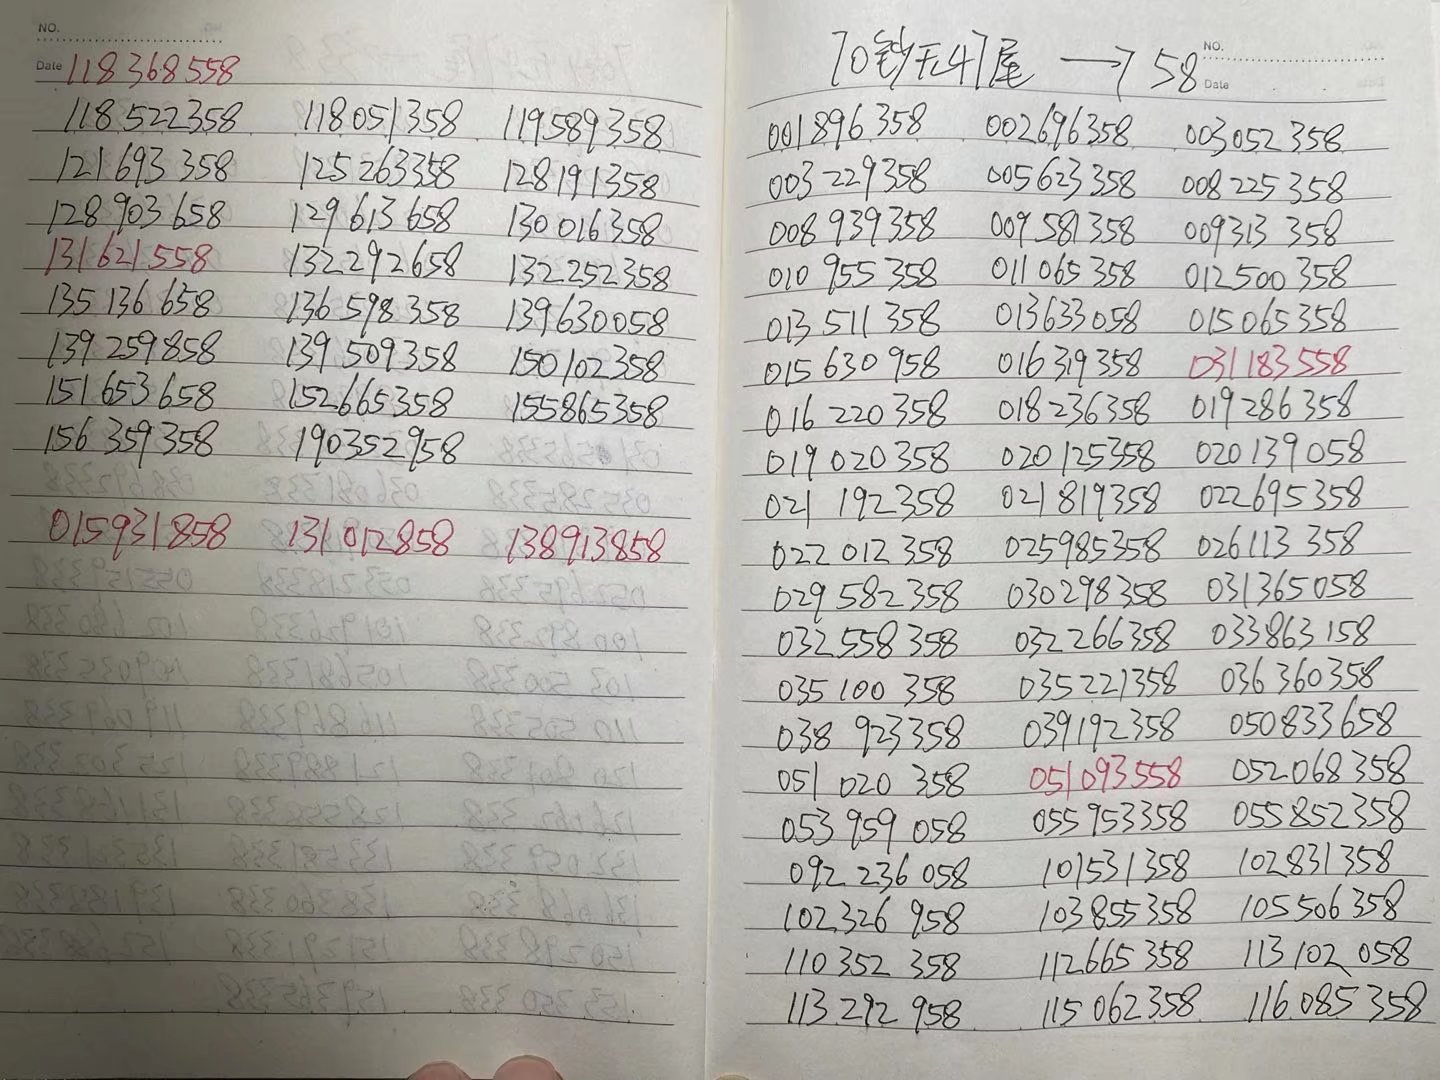 NO.
Date 118368558
118522358 118051358 119589358
121693358 125263358 128191358
128903658 129613658 130016358
131621558 132292658 132252358
135136658 136598358 139630058
139259858 139509358 150102358
151653658 152665358 155865358
156359358 190352958
015931858 131012858 138913858
70钞无47尾 → 58
NO.
Date
001896358 002696358 003052358
003229358 005623358 008225358
008939358 009581358 009313358
010955358 011065358 012500358
013511358 013633058 015065358
015630958 016319358 031183558
016220358 018236358 019286358
019020358 020125358 020139058
021192358 021819358 022695358
022012358 025985358 026113358
029582358 030298358 031365058
032558358 032266358 033863158
035100358 035221358 036360358
038923358 039192358 050833658
051020358 051093558 052068358
053959058 055953358 055852358
092236058 101531358 102831358
102326958 103855358 105506358
110352358 112665358 113102058
113292958 115062358 116085358